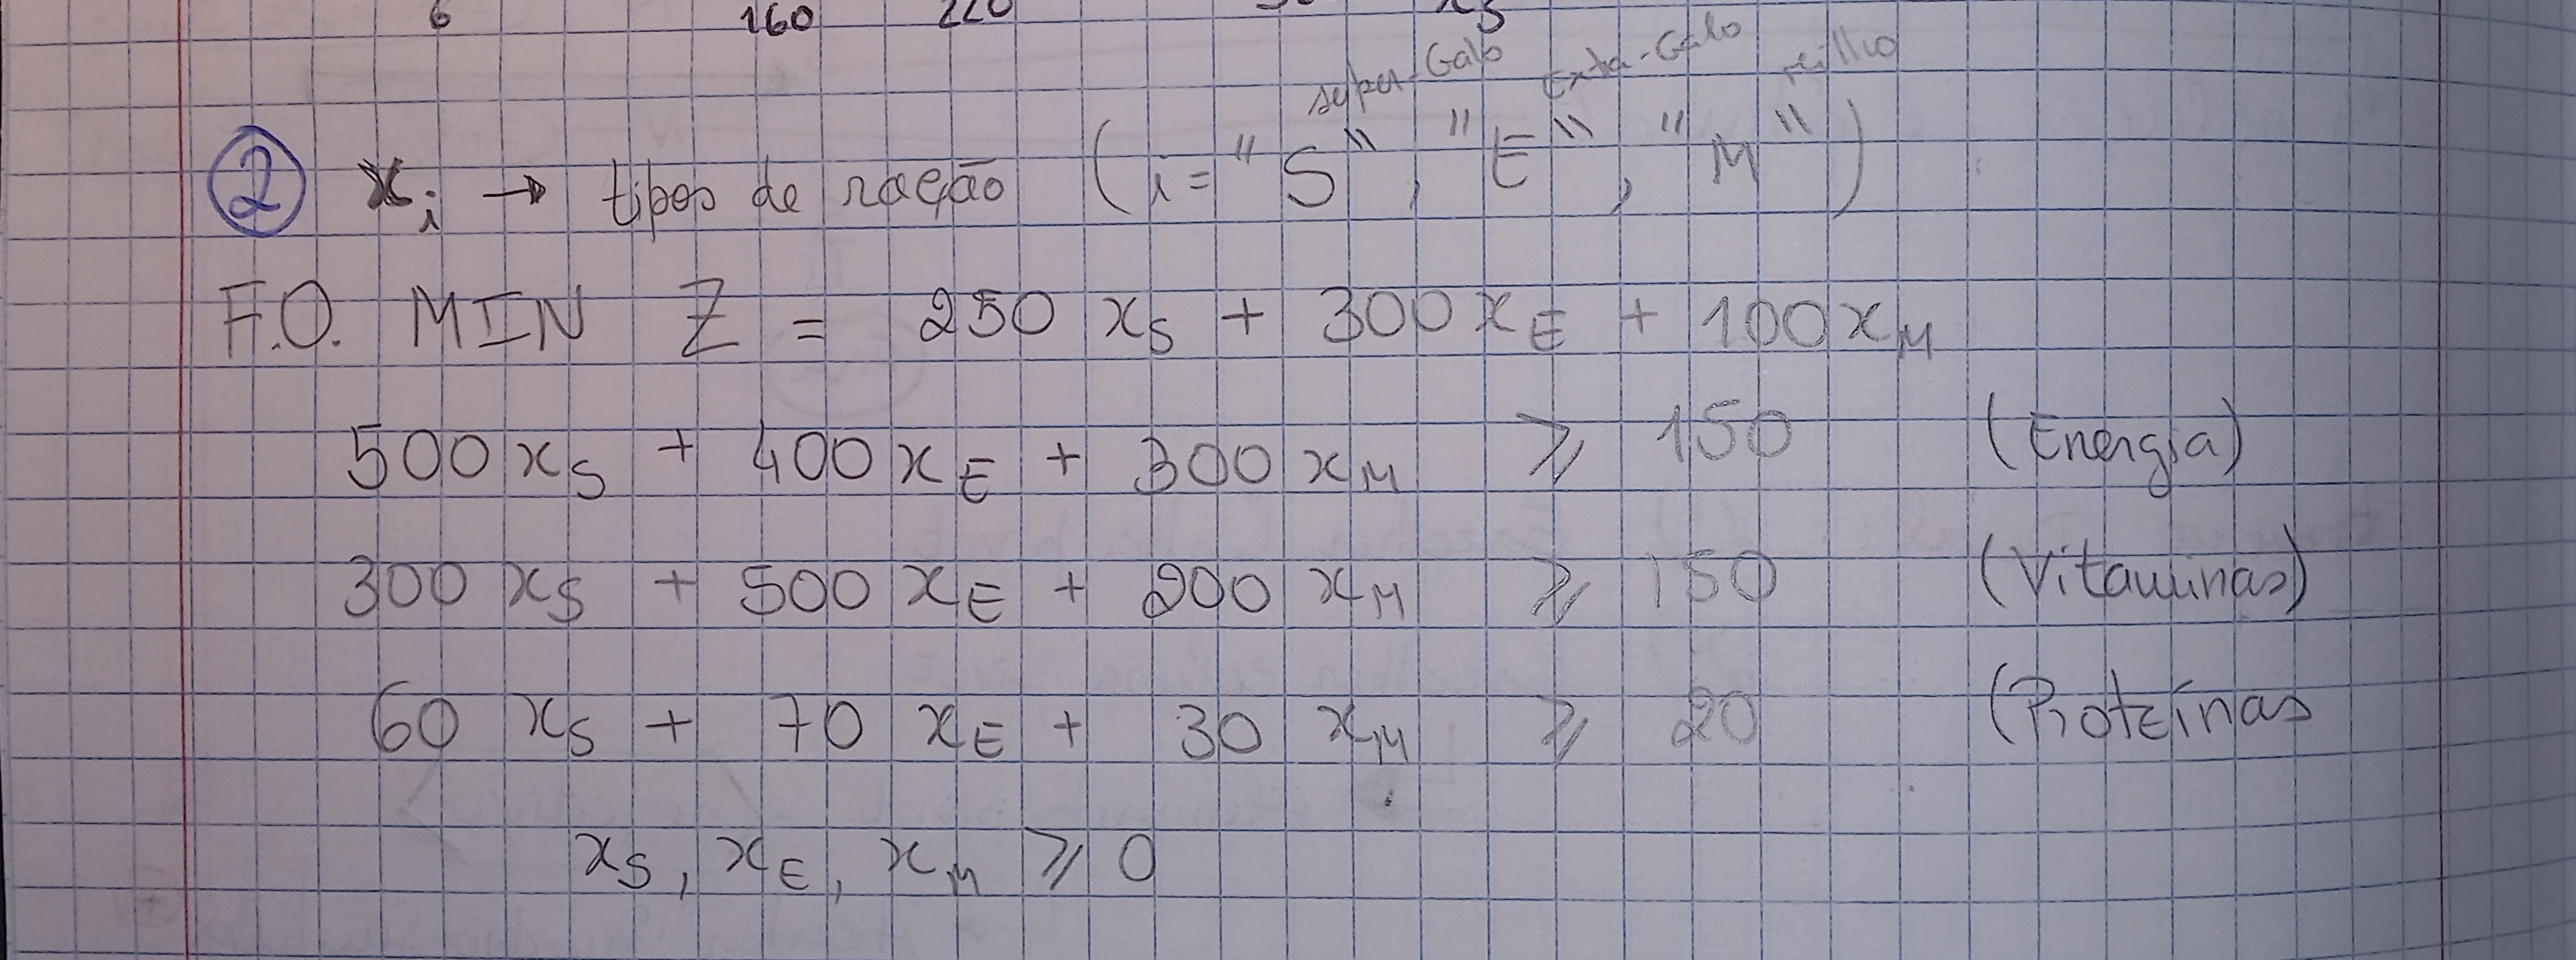 6 160 220
super-Galo Extra-Galo milho
② xᵢ → tipos de ração (i = "S", "E", "M")
F.O. MIN Z = 250 x_S + 300 x_E + 100 x_M
500 x_S + 400 x_E + 300 x_M ⩾ 150 (Energia)
300 x_S + 500 x_E + 200 x_M ⩾ 150 (Vitaminas)
60 x_S + 70 x_E + 30 x_M ⩾ 20 (Proteínas
x_S, x_E, x_M ⩾ 0